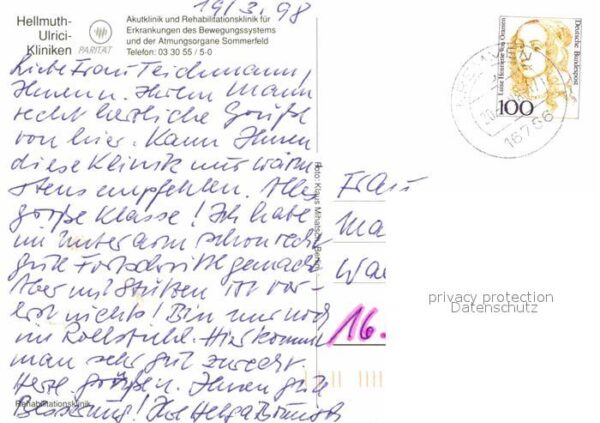 19/3. 98
Hellmuth-
Ulrici-
Kliniken
PARITÄT
Akutklinik und Rehabilitationsklinik für
Erkrankungen des Bewegungssystems
und der Atmungsorgane Sommerfeld
Telefon: 03 30 55 / 5-0
Liebe Frau Teichmann,
Ihnen u. Ihrem Mann
recht herzliche Grüße
von hier. Kann Ihnen
diese Klinik nur wärm
stens empfehlen. Alles
große Klasse! Ich habe
im Unterarm schon recht
gute Fortschritte gemacht
Aber mit Stützen ist vor-
erst nichts! Bin nur noch
im Rollstuhl. Hier kommt
man sehr gut zurecht.
Herzl. Grüßen. Ihnen gute
Besserung! Ihre Helga
Rehabilitationsklinik
Foto: Klaus Mihatsch, Berlin
Deutsche Bundespost
Luise Henriette von Oranien
100
16766
Frau
Ma
Wa
16.
privacy protection
Datenschutz